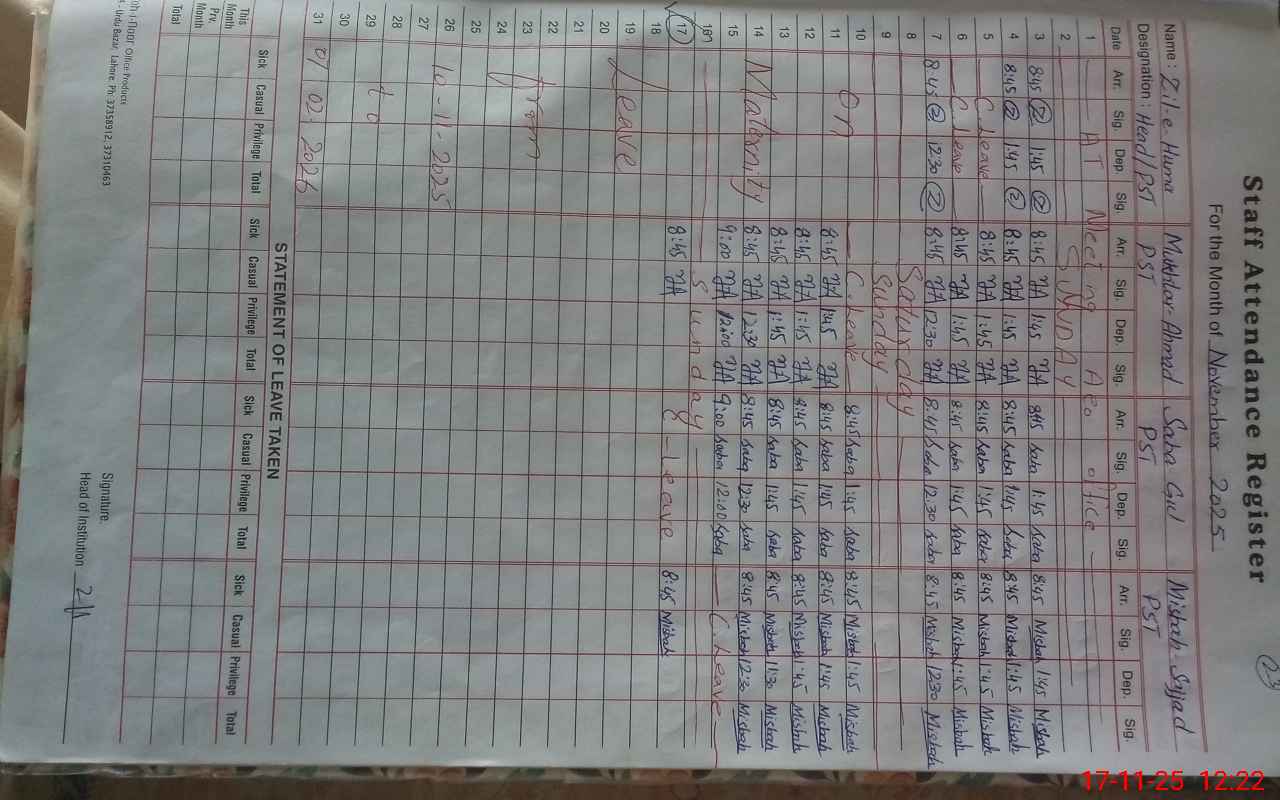 Staff Attendance Register
For the Month of November 2025
Name: Zil.e.Huma Mukhtar-Ahmad Saba Gul Misbah-Sajjad
Designation: Head/PST PST PST PST
Date Arr. Sig. Dep. Sig. Arr. Sig. Dep. Sig. Arr. Sig. Dep. Sig. Arr. Sig. Dep. Sig.
1 AT Meeting Aeo office
2 SUNDAY
3 8:45 1:45 8:45 MA 1:45 MA 8:45 Saba 1:45 Saba 8:45 Misbah 1:45 Misbah
4 8:45 1:45 8:45 MA 1:45 MA 8:45 Saba 1:45 Saba 8:45 Misbah 1:45 Misbah
5 C.leave 8:45 MA 1:45 MA 8:45 Saba 1:45 Saba 8:45 Misbah 1:45 Misbah
6 C.leave 8:45 MA 1:45 MA 8:45 Saba 1:45 Saba 8:45 Misbah 1:45 Misbah
7 8:45 12:30 8:45 MA 12:30 MA 8:45 Saba 12:30 Saba 8:45 Misbah 12:30 Misbah
8 Saturday
9 Sunday
10 C.leave 8:45 Saba 1:45 Saba 8:45 Misbah 1:45 Misbah
11 On 8:45 MA 1:45 MA 8:45 Saba 1:45 Saba 8:45 Misbah 1:45 Misbah
12 8:45 MA 1:45 MA 8:45 Saba 1:45 Saba 8:45 Misbah 1:45 Misbah
13 8:45 MA 1:45 MA 8:45 Saba 1:45 Saba 8:45 Misbah 1:30 Misbah
14 Maternity 8:45 MA 12:30 MA 8:45 Saba 12:30 Saba 8:45 Misbah 12:30 Misbah
15 9:00 MA 12:00 MA 9:00 Saba 12:00 Saba C.leave
16 Sunday
17 8:45 MA C-leave 8:45 Misbah
18
19 Leave
20
21
22
23 From
24
25
26 10-11-2025
27
28
29 to
30
31 01 02:2026
STATEMENT OF LEAVE TAKEN
Sick Casual Privilege Total Sick Casual Privilege Total Sick Casual Privilege Total Sick Casual Privilege Total
This Month
Prv. Month
Total
Signature.
Head of Institution
Office Products
Urdu Bazar, Lahore. Ph: 37358912, 37310463
17-11-25 12:22